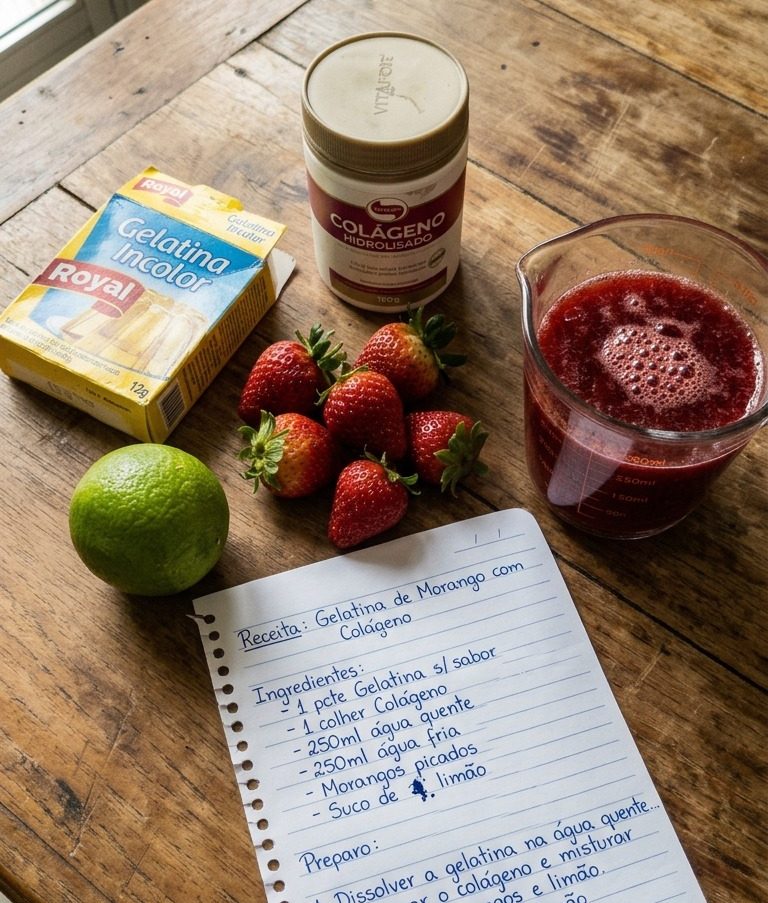 VITAFOR
Royal
Gelatina
Incolor
Royal
12g
COLÁGENO
HIDROLISADO
150ml
Receita: Gelatina de Morango com
Colágeno
Ingredientes:
- 1 pcte Gelatina s/ sabor
- 1 colher Colágeno
- 250ml água quente
- 250ml água fria
- Morangos picados
- Suco de limão
Preparo:
Dissolver a gelatina na água quente...
o colágeno e misturar
e limão.